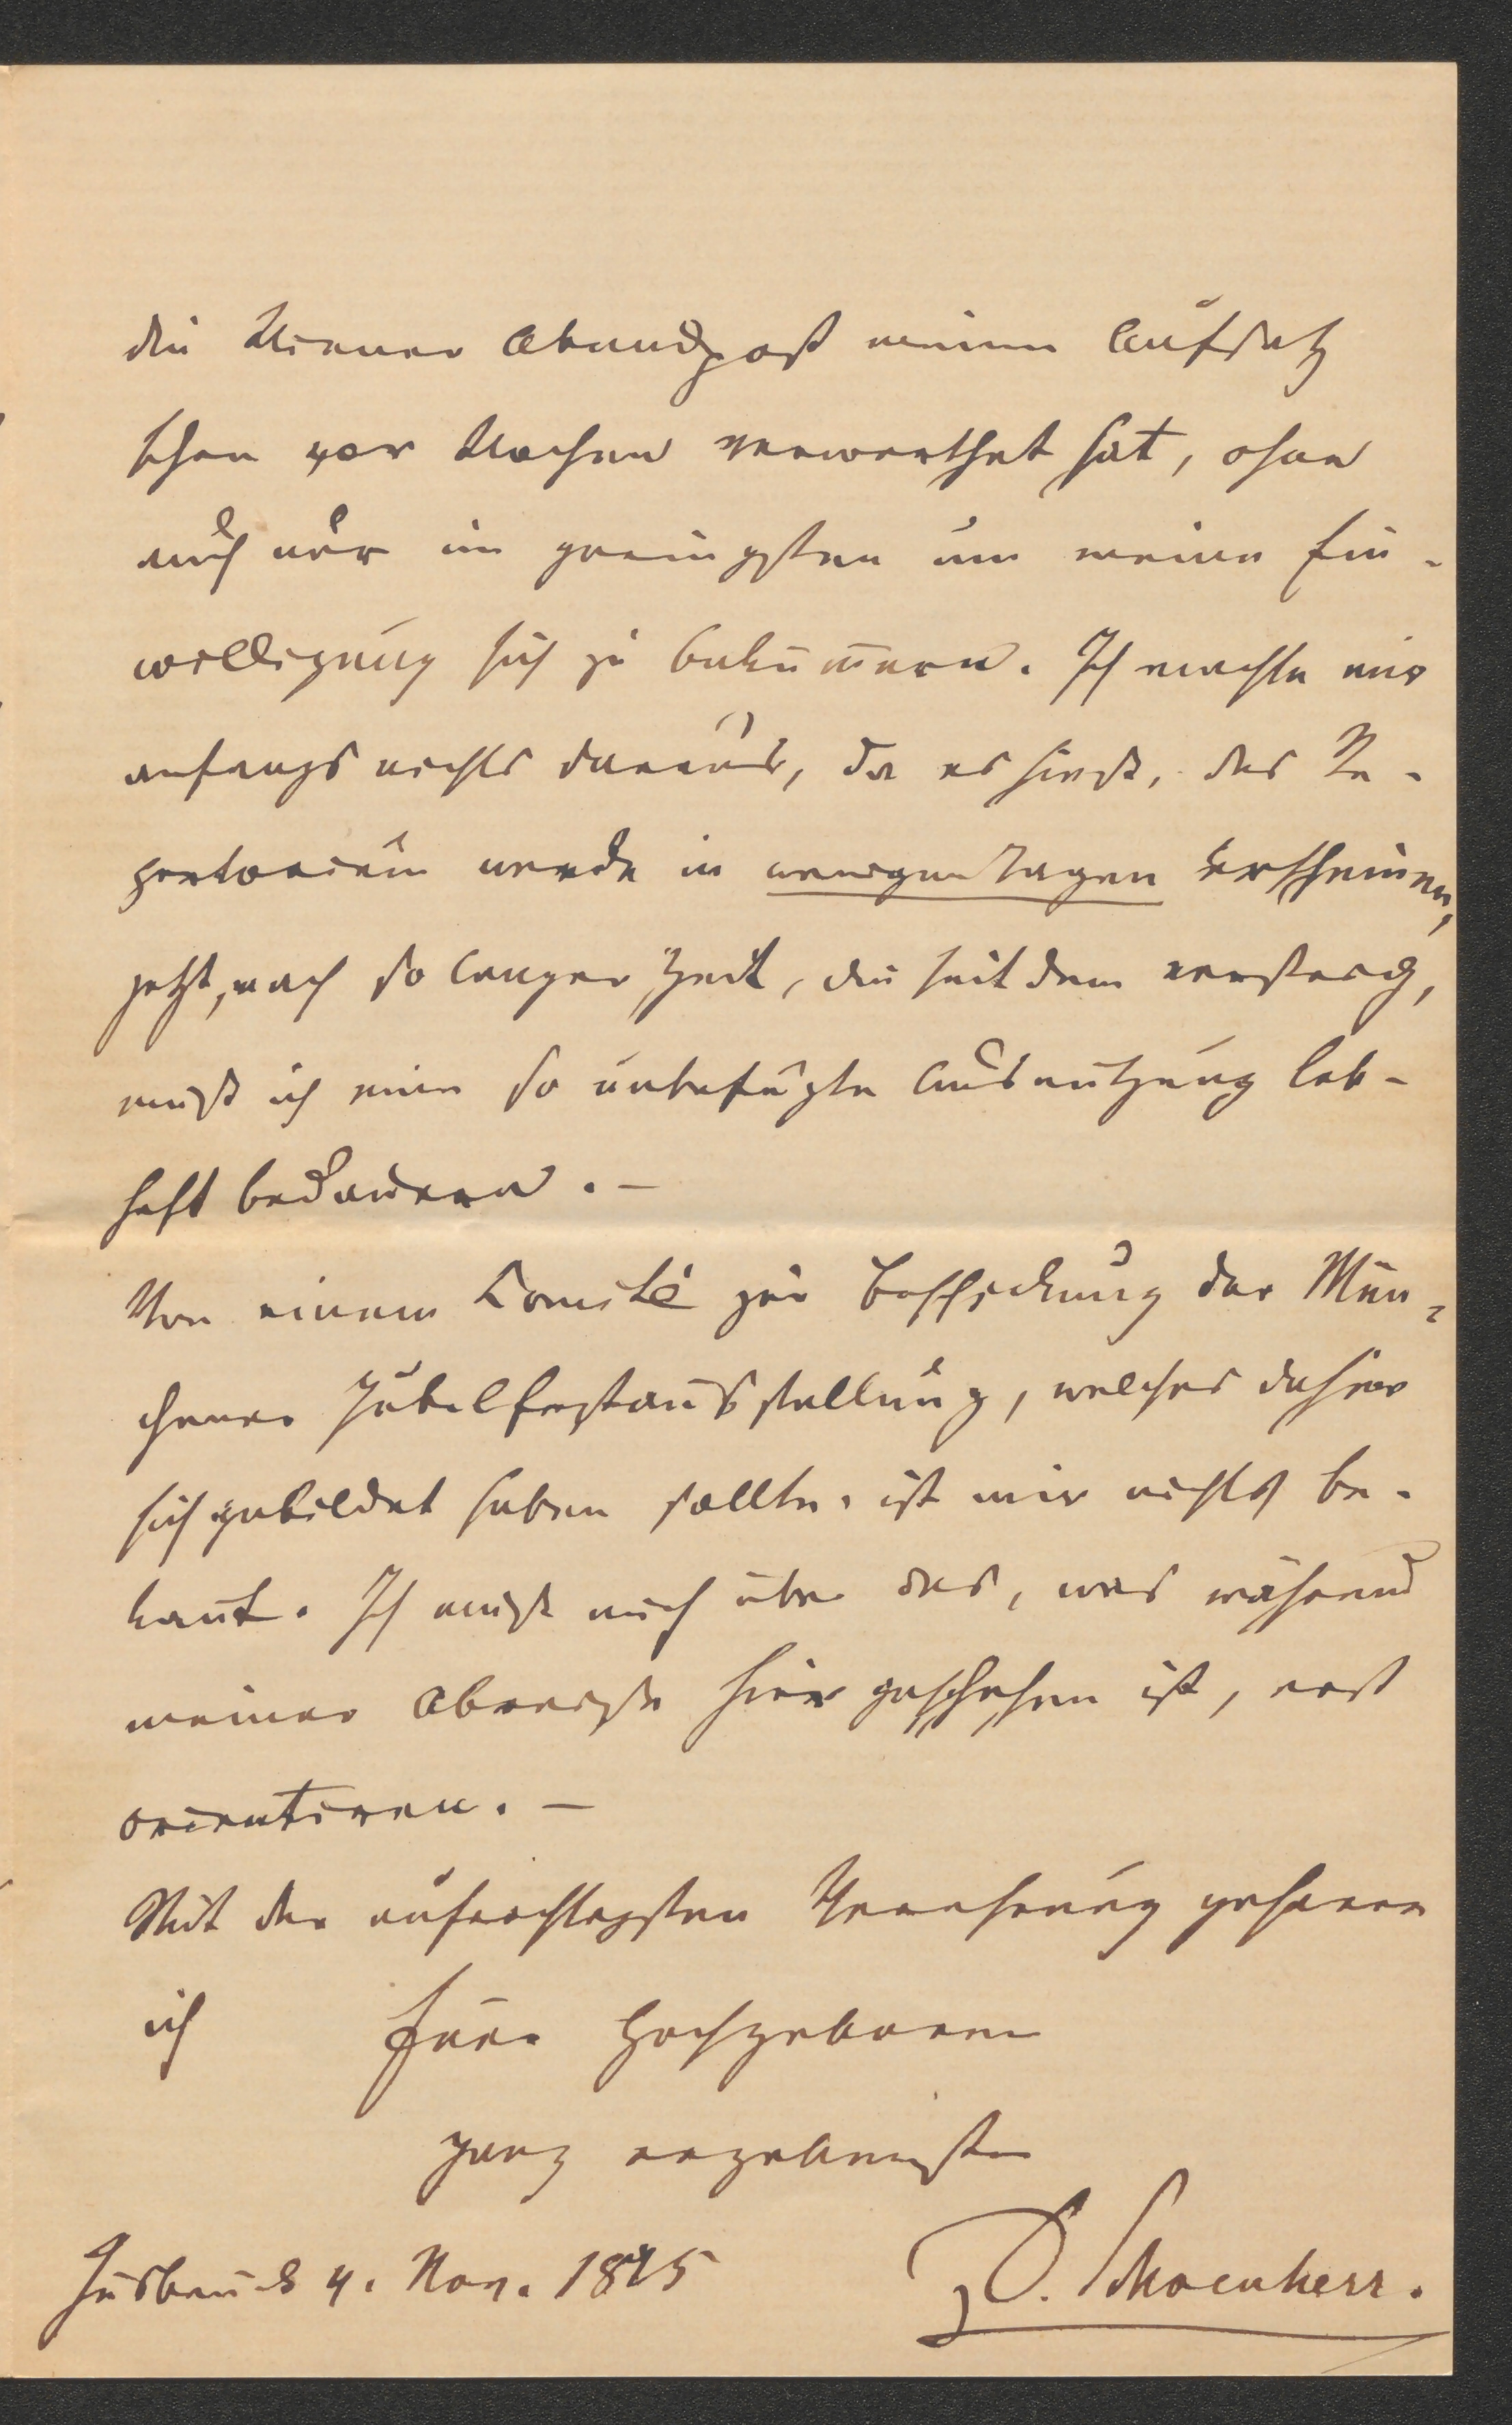 die Wiener Abendpost meinen Aufsatz
schon vor Wochen verwerthet hat, ohne
auch nur im geringsten um meine Ein-
willigung sich zu bekümmern. Ich machte mir
anfangs nichts daraus, da es hieß, das Re-
pertorium werde in wenigen Tagen erscheinen,
jetzt, nach so langer Zeit, die seitdem verstrich,
muß ich eine so unbefugte Ausnutzung leb-
haft bedauern. –
Von einem Comité zur Beschickung der Mün-
chener Jubelfestausstellung, welches dahier
sich gebildet haben sollte, ist mir nichts be-
kannt. Ich muß mich über das, was während
meiner Abreise hier geschehen ist, erst
orientiren. –
Mit der aufrichtigsten Verehrung geharre
ich Euer Hochgeboren
ganz ergebenster
Insbruck 4. Nov. 1875 D. Schoenherr.